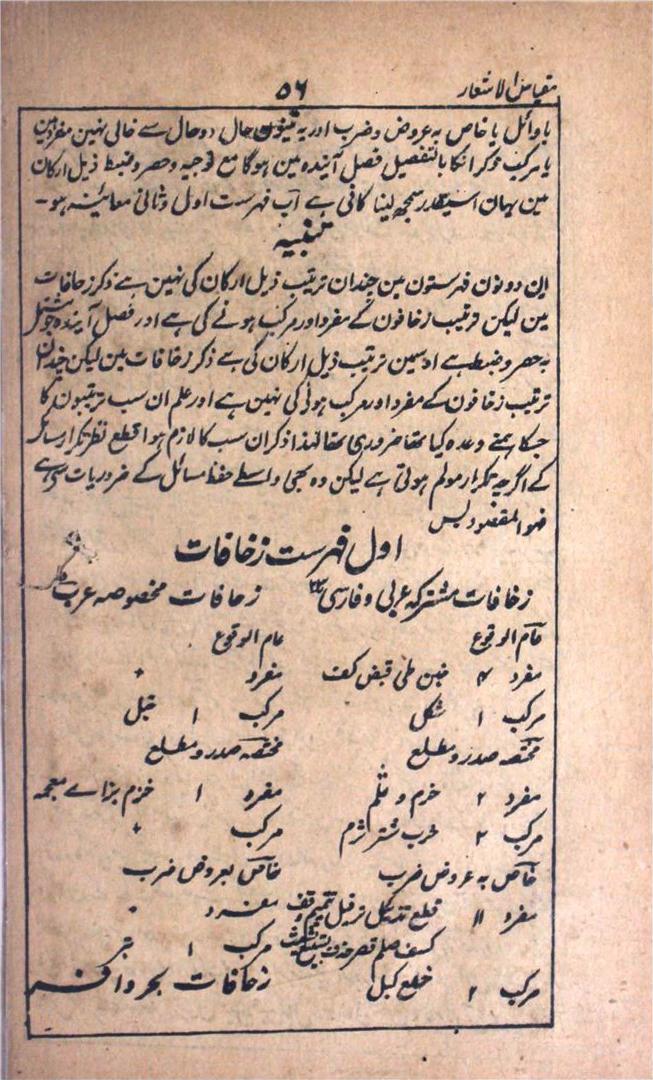 مقیاس الاشعار ۵۶
باوائل یا خاص بہ عروض وضرب اور یہ تینون حال دو حال سے خالی نہین مفرد ہین
یا مرکب ذکر انکا بالتفصیل فصل آیندہ مین ہوگا مع توجیہ و حصر و ضبط ذیل ارکان
مین یہان اسیقدر سمجھ لینا کافی ہے اب فہرست اول و ثانی معائنہ ہو۔
تنبیہ
این دونون فہرستون مین چندان ترتیب ذیل ارکان کی نہین ہے ذکر زحافات
مین لیکن ترتیب زحافون کے مفرد اور مرکب ہونے کی ہے اور فصل آیندہ جو مشتمل
بہ حصر و ضبط ہے اوسمین ترتیب ذیل ارکان کی ہے ذکر زحافات مین لیکن چندان
ترتیب زحافون کے مفرد اور مرکب ہونی کی نہین ہے اور علم ان سب ترتیبون کا
جسکا ہمنے وعدہ کیا تھا ضروری تھا لہذا ذکر ان سب کا لازم ہوا قطع نظر تکرار مسائل
کے اگرچہ تکرار مولم ہوتی ہے لیکن وہ بھی واسطے حفظ مسائل کے ضروریات سے ہے
فہو المقصود بس
اول فہرست زحافات
زحافات مشترکہ عربی و فارسی زحافات مخصوصہ عرب
عام الوقوع عام الوقوع
مفرد ۴ خبن طی قبض کف مفرد ۰
مرکب ۱ شکل مرکب ۱ خبل
مختصہ صدر و مطلع مختصہ صدر و مطلع
مفرد ۲ خرم و ثلم مفرد ۱ خزم بزاے معجمہ
مرکب ۳ خرب شتر ثرم مرکب ۰
خاص بہ عروض ضرب خاص بعروض ضرب
مفرد ۱۱ قطع تذییل ترفیل مفرد ۰
کسف صلم قصر حذف مرکب ۱ بتر
مرکب ۲ خلع کبل زحافات بحر وافر